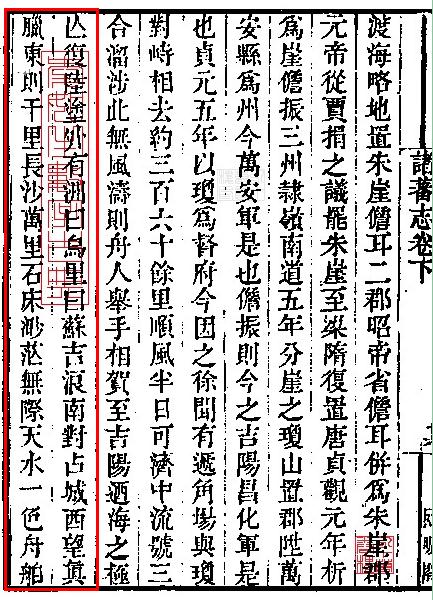 諸蕃志卷下
渡海略地置朱崖儋耳二郡昭帝省儋耳併為朱崖郡
元帝從賈捐之議罷朱崖至梁隋復置唐貞觀元年析
為崖儋振三州隸嶺南道五年分崖之瓊山置郡陞萬
安縣為州今萬安軍是也儋振則今之吉陽昌化軍是
也貞元五年以瓊為督府今因之徐聞有遞角場與瓊
對峙相去約三百六十餘里順風半日可濟中流號三
合溜涉此無風濤則舟人舉手相賀至吉陽迺海之極
亡復陸塗外有洲曰烏里曰蘇吉浪南對占城西望真
臘東則千里長沙萬里石床渺茫無際天水一色舟舶